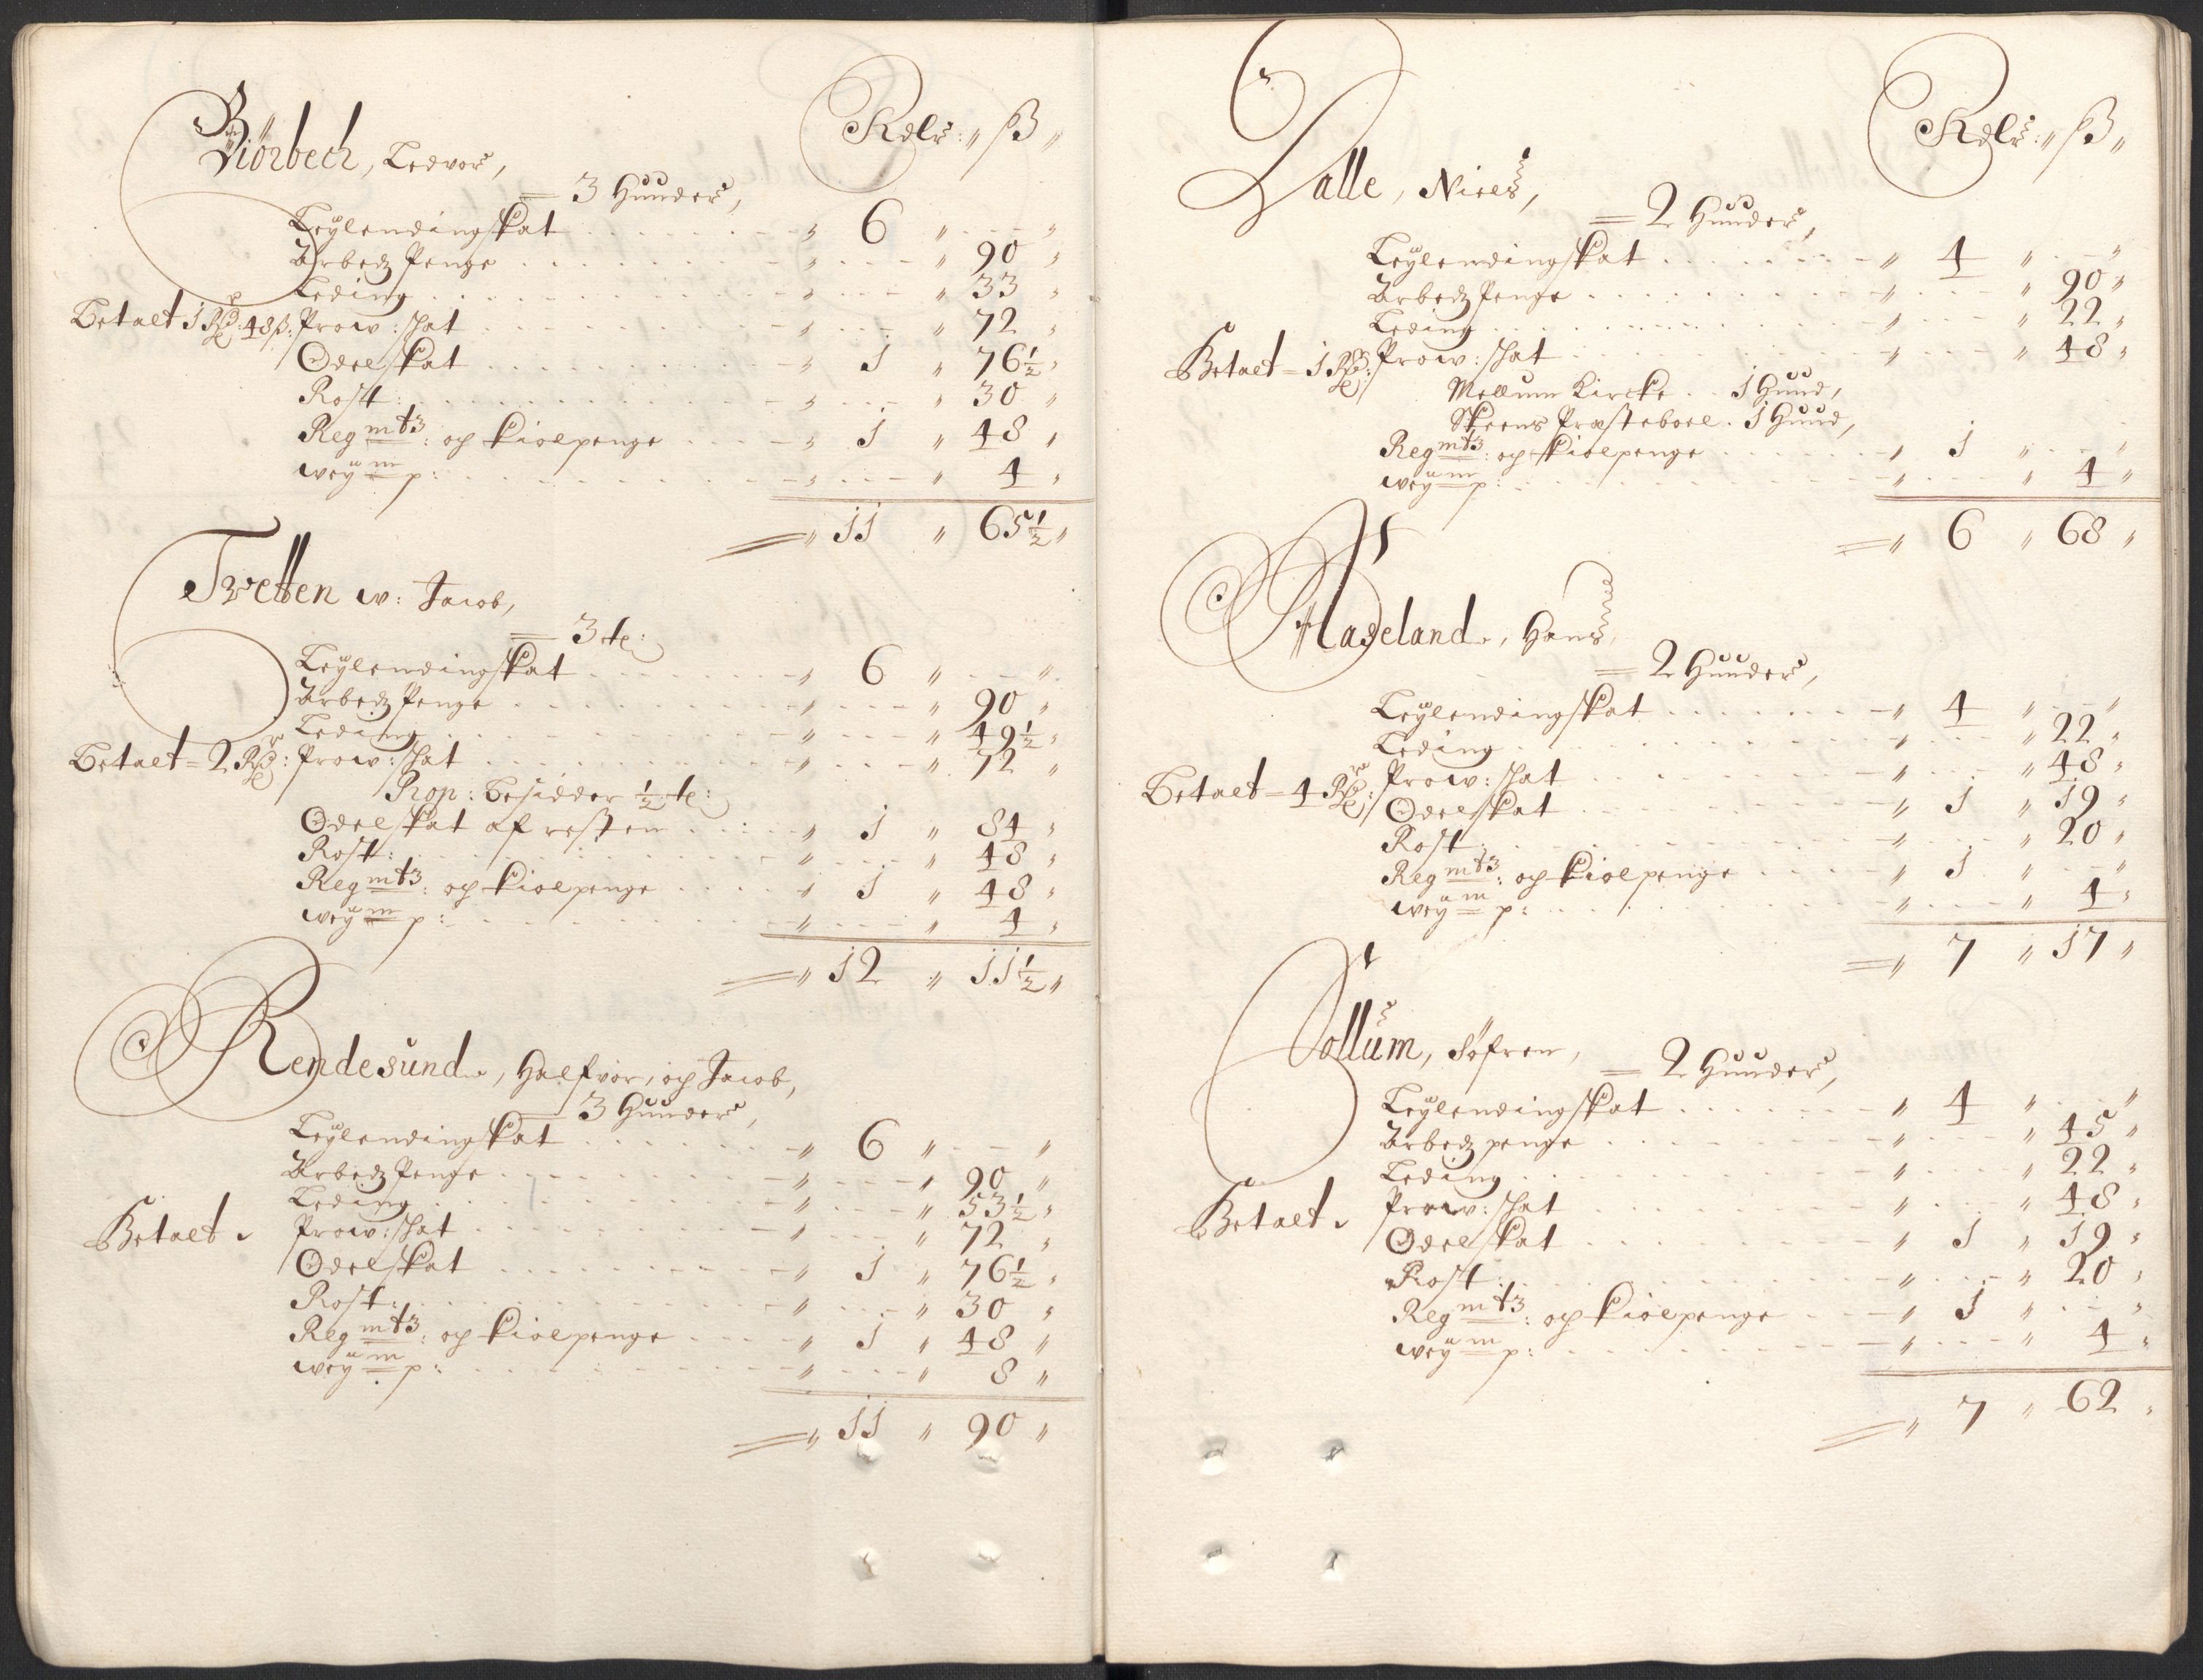 Rdlr: ß
Biörbech, Ledvor,
3 Huuder,
Leÿlendingskat 6
Arbedz Penge 90
Leding 33
Betalt 1 Rdr 48 ß: Prow: skat 72
Odelskat 1 76½
Rost: 30
Reg mts: og kiolpenge 1 48
weÿ m p: 4
11 65½
Tvetten w: Jacob,
3 te:
Leÿlendingskat 6
Arbedz Penge 90
Leding 49½
Betalt 2 Rdr: Prow: skat 72
Prop: besidder ½ te:
Odelskat af resten 1 84
Rost: 48
Reg mts: og kiolpenge 1 48
weÿ m p: 4
12 11½
Rendesund, Halfvor, og Jacob,
3 Huuder,
Leÿlendingskat 6
Arbedz Penge 90
Leding 53½
Betalt Prow: skat 72
Odelskat 1 76½
Rost: 30
Reg mts: og kiolpenge 1 48
weÿ m p: 8
11 90
Rdlr: ß
Dalle, Niels,
2 Huuder,
Leÿlendingskat 4
Arbedz Penge 90
Leding 22
Betalt 1 Rdr: Prow: skat 48
Mellum Kircke 1 Huud,
Skeens Præsteboel. 1 Huud,
Reg mts: og kiolpenge 1
weÿ m p: 4
6 68
Hageland, Hans,
2 Huuder,
Leÿlendingskat 4
Leding 22
Betalt 4 Rdr: Prow: skat 48
Odelskat 1 19
Rost 20
Reg mts: og kiolpenge 1
weÿ m p: 4
7 17
Sollum, Söfren,
2 Huuder,
Leÿlendingskat 4
Arbedz penge 45
Leding 22
Betalt Prow: skat 48
Odelskat 1 19
Rost 20
Reg mts: og kiolpenge 1
weÿ m p: 4
7 62